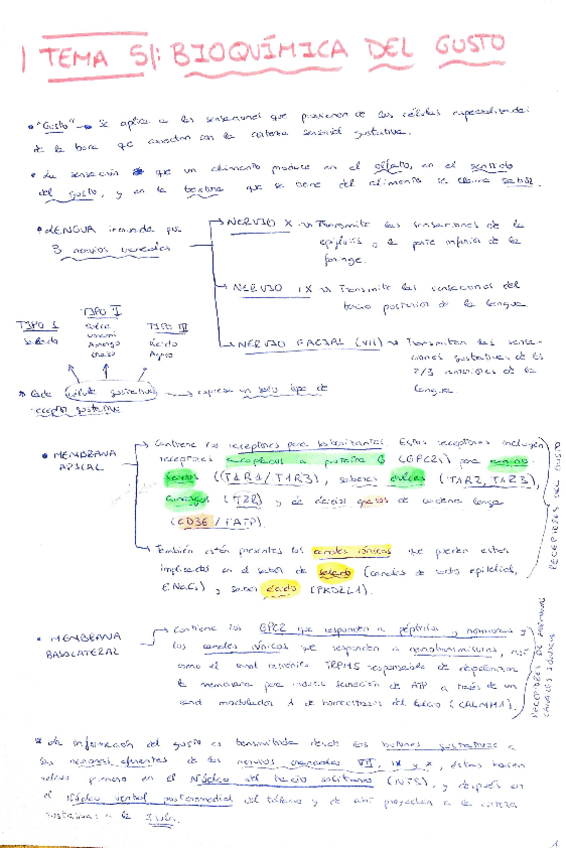 TEMA 5: BIOQUÍMICA DEL GUSTO
"Gusto" → Se aplica a las sensaciones que provienen de las células especializadas
de la boca que conectan con la corteza sensorial gustativa.
La sensación que un alimento produce en el olfato, en el sentido
del gusto, y en la textura que se tiene del alimento se llama sabor.
LENGUA inervada por
3 nervios craneales
NERVIO X → Transmite las sensaciones de la
epiglotis y la parte inferior de la
faringe.
NERVIO IX → Transmite las sensaciones del
tercio posterior de la lengua
NERVIO FACIAL (VII) → Transmiten las sensa-
ciones gustativas de los
2/3 anteriores de la
lengua.
TIPO I
Salado
TIPO II
Dulce
Umami
Amargo
Graso
TIPO III
Ácido
Agua
Cada célula gustativa → expresa un solo tipo de
receptor gustativo
MEMBRANA
APICAL
Contiene los receptores para saborizantes. Estos receptores incluyen
receptores acoplados a proteína G (GPCRs) para amino-
ácidos (T1R1/T1R3), sabores dulces (T1R2, T1R3),
amargos (T2R) y de ácidos grasos de cadena larga
(CD36/FATP).
También están presentes los canales iónicos que pueden estar
implicados en el sabor de salado (canales de sodio epitelial,
ENaCs) y sabor ácido (PKD2L1).
RECEPTORES DEL GUSTO
MEMBRANA
BASOLATERAL
Contiene los GPCR que responden a péptidos y hormonas y
los canales iónicos que responden a neurotransmisores, así
como el canal catiónico TRPM5 responsable de despolarizar
la membrana para inducir secreción de ATP a través de un
canal modulador 1 de homeostasis del calcio (CALHM1).
RECEPTORES DE HORMONAS
CANALES IÓNICOS
La información del gusto es transmitida desde los botones gustativos a
las neuronas aferentes de los nervios craneales VII, IX y X, éstas hacen
relevo primero en el Núcleo del tracto solitario (NTS), y después en
el Núcleo ventral posteromedial del tálamo y de ahí proyectan a la corteza
gustativa a la ínsula.
1